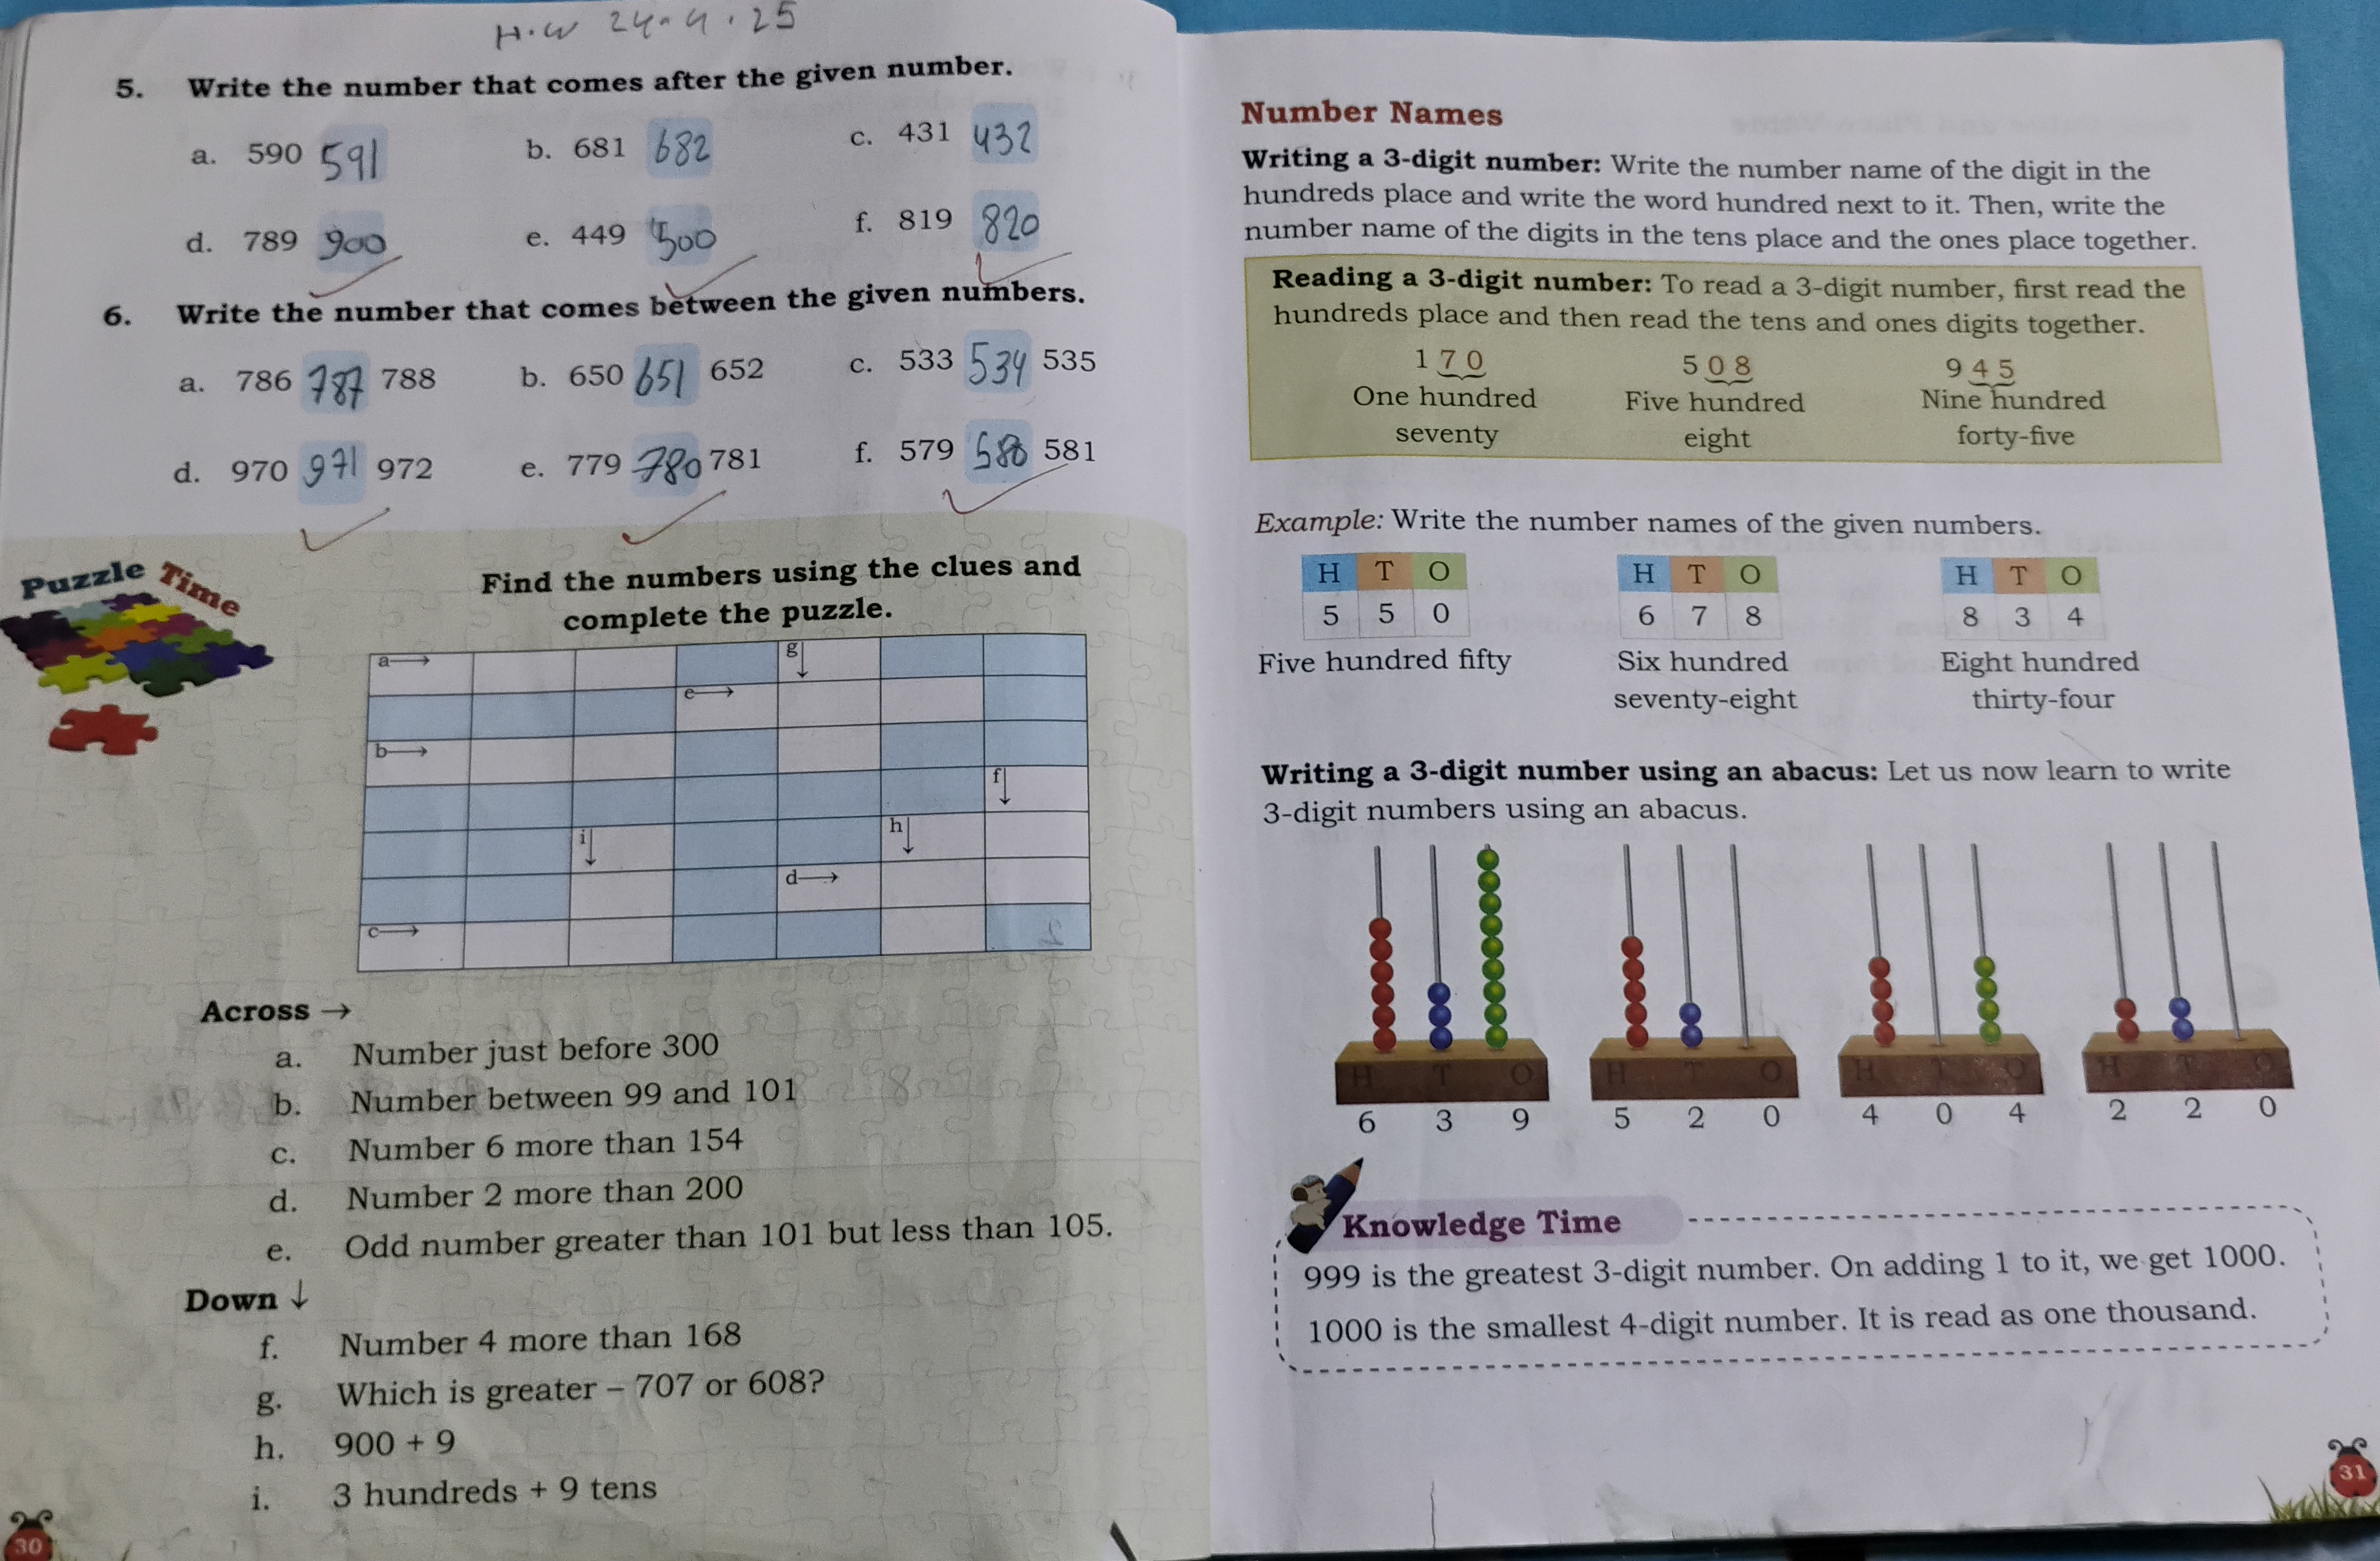 H.W 24.4.25
5. Write the number that comes after the given number.
a. 590 591 b. 681 682 c. 431 432
d. 789 900 e. 449 500 f. 819 820
6. Write the number that comes between the given numbers.
a. 786 787 788 b. 650 651 652 c. 533 534 535
d. 970 971 972 e. 779 780 781 f. 579 580 581
Puzzle Time
Find the numbers using the clues and
complete the puzzle.
a→ g↓
e→
b→
f↓
i↓ h↓
d→
c→
Across →
a. Number just before 300
b. Number between 99 and 101
c. Number 6 more than 154
d. Number 2 more than 200
e. Odd number greater than 101 but less than 105.
Down ↓
f. Number 4 more than 168
g. Which is greater – 707 or 608?
h. 900 + 9
i. 3 hundreds + 9 tens
30
Number Names
Writing a 3-digit number: Write the number name of the digit in the
hundreds place and write the word hundred next to it. Then, write the
number name of the digits in the tens place and the ones place together.
Reading a 3-digit number: To read a 3-digit number, first read the
hundreds place and then read the tens and ones digits together.
1 7 0 5 0 8 9 4 5
One hundred Five hundred Nine hundred
seventy eight forty-five
Example: Write the number names of the given numbers.
H T O H T O H T O
5 5 0 6 7 8 8 3 4
Five hundred fifty Six hundred Eight hundred
seventy-eight thirty-four
Writing a 3-digit number using an abacus: Let us now learn to write
3-digit numbers using an abacus.
H T O H T O H T O H T O
6 3 9 5 2 0 4 0 4 2 2 0
Knowledge Time
999 is the greatest 3-digit number. On adding 1 to it, we get 1000.
1000 is the smallest 4-digit number. It is read as one thousand.
31